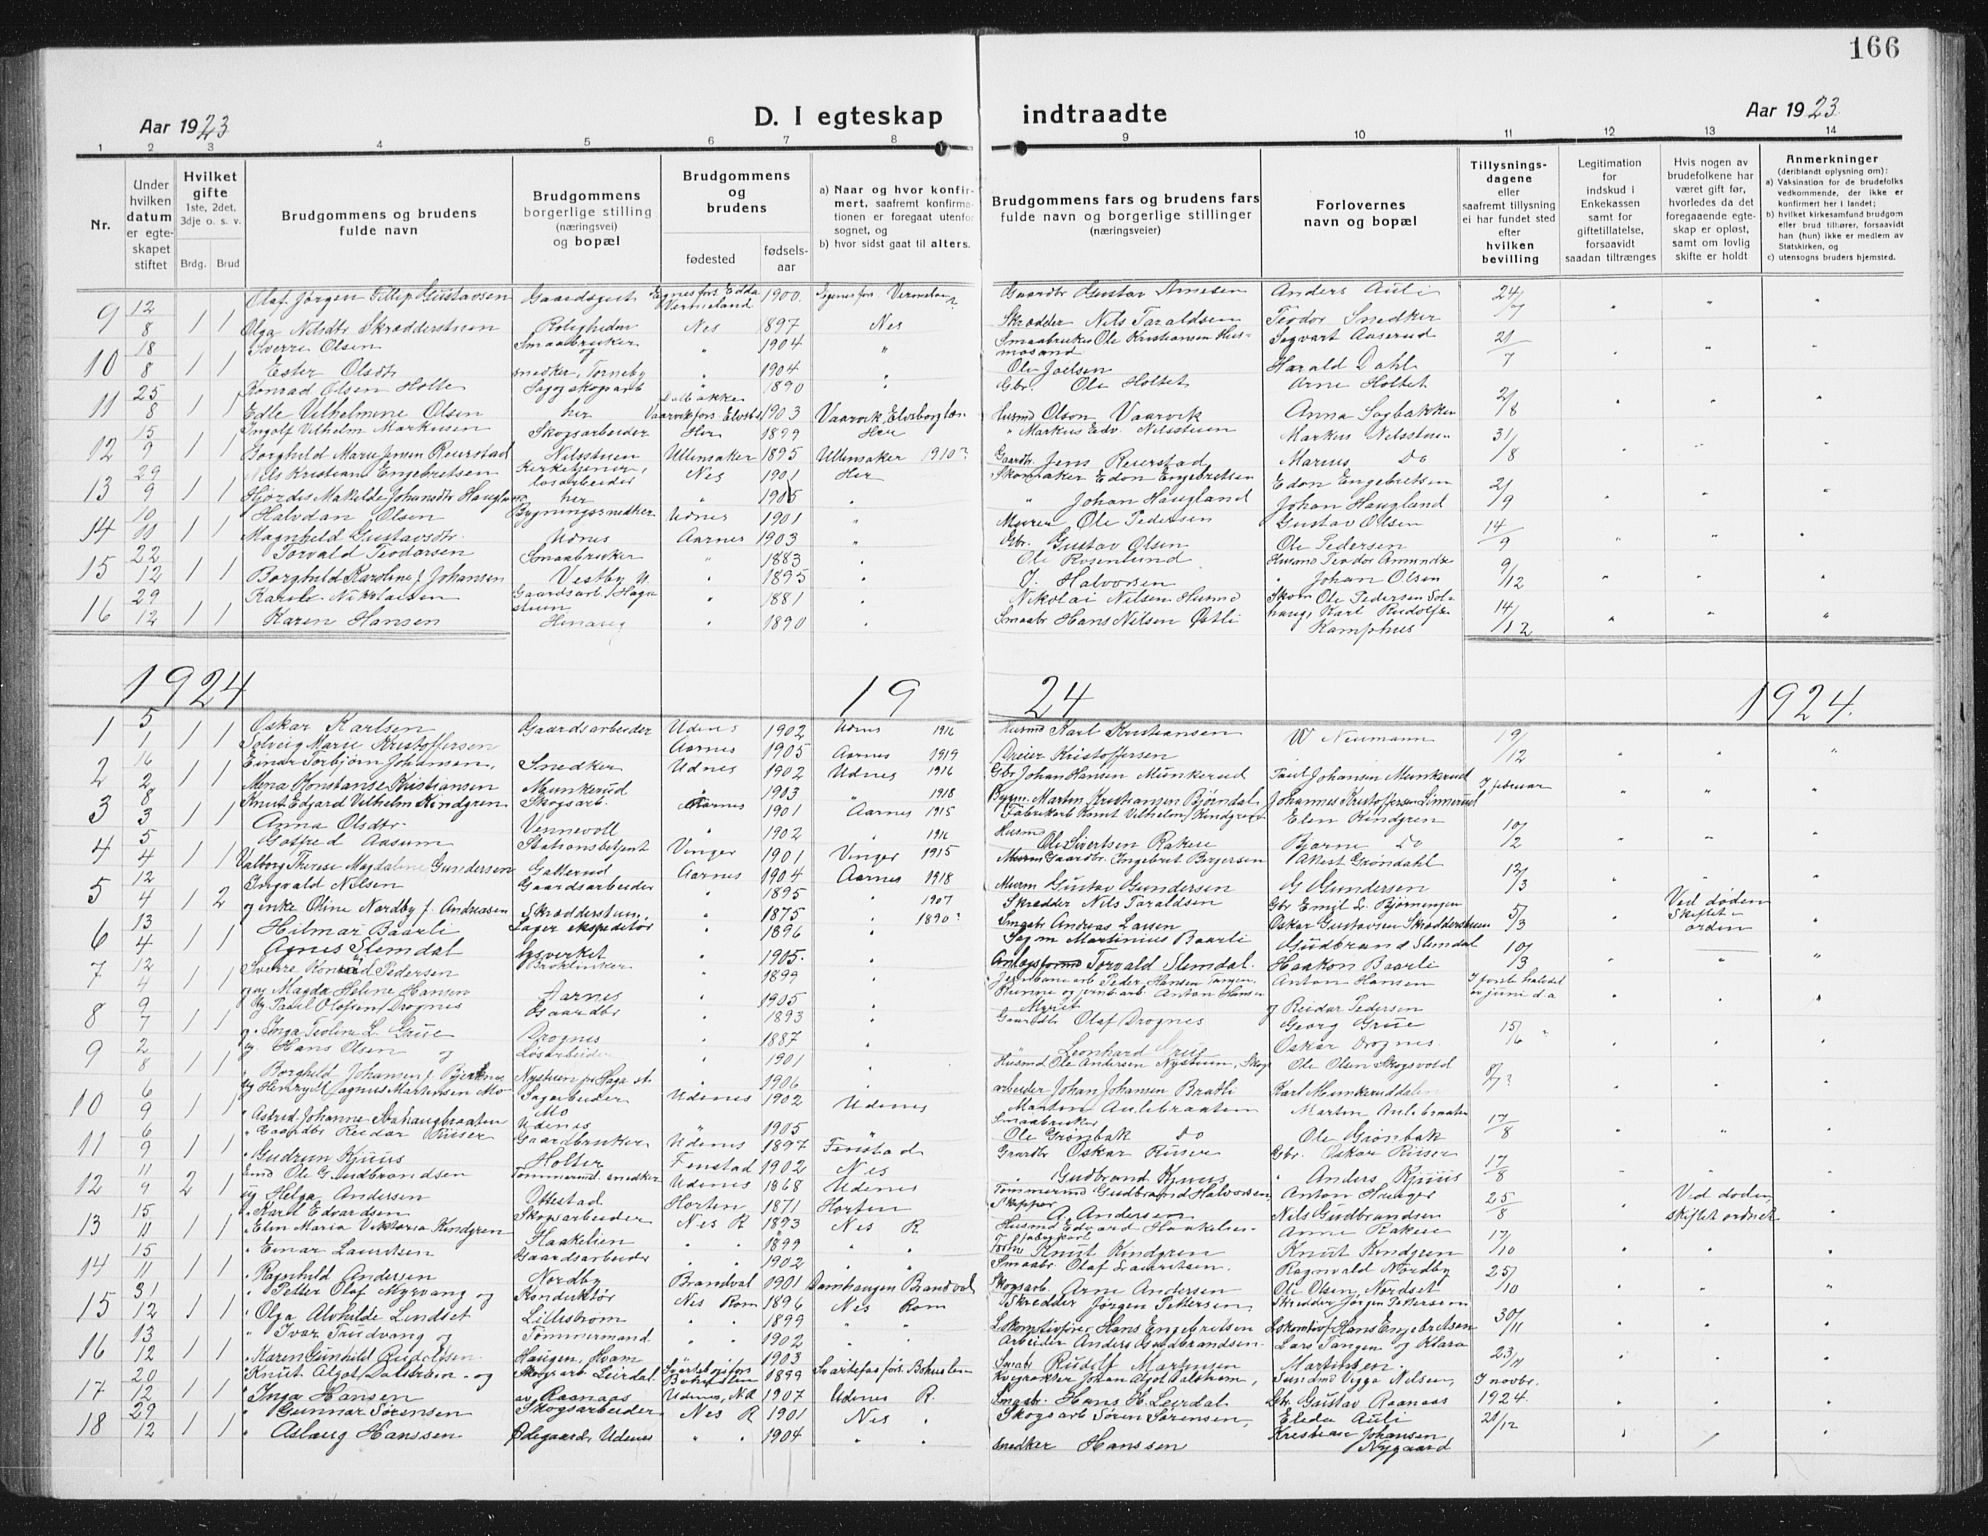 166
Aar 1923
D. I egteskap indtraadte
Aar 1923
1 2 3 4 5 6 7 8 9 10 11 12 13 14
Nr.
Under hvilken datum er egte-skapet stiftet
Hvilket gifte 1ste, 2det, 3dje o. s. v.
Brdg. Brud
Brudgommens og brudens fulde navn
Brudgommens borgerlige stilling (næringsvei) og bopæl
Brudgommens og brudens
fødested
fødsels-aar
a) Naar og hvor konfir-mert, saafremt konfirma-tionen er foregaat utenfor sognet, og
b) hvor sidst gaat til alters.
Brudgommens fars og brudens fars fulde navn og borgerlige stillinger (næringsveier)
Forlovernes navn og bopæl
Tillysnings-dagene eller saafremt tillysning ei har fundet sted efter hvilken bevilling
Legitimation for indskud i Enkekassen samt for giftetillatelse, forsaavidt saadan tiltrænges
Hvis nogen av brudefolkene har været gift før, hvorledes da det foregaaende egte-skap er opløst, samt om lovlig skifte er holdt
Anmerkninger (deriblandt oplysning om):
a) Vaksination for de brudefolks vedkommende, der ikke er konfirmert her i landet;
b) hvilket kirkesamfund brudgom eller brud tilhører, forsaavidt han (hun) ikke er medlem av Statskirken, og
c) utensogns bruders hjemsted.
9 12/8 1 1 Olaf Jørgen Fillip Gustavsen Gaardsgut 1900 Gaardbr Gustav Arnesen Anders Auli 24/7
Olga Nilsdtr Skrædderstuen Roligheden Nes 1897 Nes Skrædder Nils Taraldsen Teodor Snedker
10 18/8 1 1 Sverre Olsen Smaabruker og 1904 Smaabruker Ole Kristiansen Hus-mosand Segvart Aaserud 21/7
Ester Olsdtr snedker, Torneby 1904 Ole Joelsen Harald Dahl
11 25/8 1 1 Konrad Olsen Holte Sag og skogsarb 1890 Gbr. Ole Holtet Arne Holtet 2/8
Edle Vilhelmine Olsen her 1903 Vaarvik, Elvsborglæn Husmd Olson Vaarvik Anna Sagbakken
12 15/9 1 1 Ingolf Vilhelm Markusen Skogsarbeider Her 1899 Her " Markus Edv. Nilsstuen Markus Nilsstuen 31/8
Borghild Marie Jensen Reierstad Nilsstuen Ullensaker 1895 Ullensaker 1910? Gaardbr. Jens Reierstad Marius Do
13 29/9 1 1 Nils Kristian Engebretsen Kirketjener, løsarbeider Nes 1901 Her Skomaker Edon Engebretsen Edon Engebretsen 2/9
Hjørdis Makilde Johansdtr Haugland her 1905 " Johan Haugland Johan Haugland
14 10/11 1 1 Halvdan Olsen Bygningssnedker Udnes 1901 Murer Ole Pedersen Gustav Olsen 14/9
Magnhild Gustavsdtr. Udnes Aarnes 1903 Gbr. Gustav Olsen Ole Pedersen
15 22/12 1 1 Torvald Teodorsen Smaabruker 1883 Ole Rosenlund Husmd Teodor Amundsen 9/12
Borghild Karoline f. Johansen Vestby 1895 J. Halvorsen Johan Olsen
16 29/12 1 1 Karele Nikolaisen Gaardsarb / Haga stuen 1881 Nikolai Nilsen Husmd Skom Ole Pedersen Sol-haug, Karl Rudolfsen 14/12
Karen Hansen Henaug 1890 Smaabr Hans Nilsen Østli Kamphus
1924 19 24 1924.
1 5/1 1 1 Oskar Karlsen Gaardsarbeider Udnes 1902 Udnes 1916 Husmd Karl Kristiansen W Neumann 19/12
Solveig Marie Kristoffersen Aarnes 1905 Aarnes 1919 Dreier Kristoffersen
2 16/2 1 1 Einar Torbjørn Johansen, Snedker Udnes 1902 Udnes 1916 Gbr Johan Hansen Munkerud Paul Johansen Munkerud I februar
Mena Konstanse Kristiansen Munkerud 1903 1918 Martin Kristiansen Bjørndal Johannes Kristoffersen Linnerud
3 8/3 1 1 Knut Edgard Vilhelm Kindgren Skogsarb. Aarnes 1901 Aarnes 1915 Fabrikarb Knut Vilhelm Kindgren Elen Kindgren 10/2
Anna Olsdtr. Vennevoll 1902 1916 Husmd Ole Sivertsen Rakeie Bjarne Do
4 5/4 1 1 Gotfred Aasum Stationsbetjent Vinger 1901 Vinger 1915 Gaardbr. Ingebret Bergersen Attest Grøndahl 12/3
Valborg Therese Magdalene Gundersen Galterud Aarnes 1904 Aarnes 1918 Murm Gustav Gundersen G Gundersen
5 12/4 1 2 Ingvald Nilsen Gaardsarbeider 1895 1907 Skrædder Nils Taraldsen Gbr Emil L. Bjørningen 5/3 Ved døden
og enke Oline Nordby f. Andreasen Skrædderstuen. 1875 1890? Andreas Larsen Oskar Gustavsen Skrædderstuen Skiftet i orden
6 13/4 1 1 Hilmar Baarli Lager ekspeditør 1896 Martinius Baarli Gudbrand Slemdal 10/3
Agnes Slemdal lysverket 1905. Torvald Slemdal. Haakon Baarli
7 12/4 1 1 Sverre Konrad Pedersen 1899 Jernbanearb Peder Hansen Anton Hansen I første halvdel
og Magda Helene Hansen Aarnes 1905 Anton Hansen og Reidar Pedersen av juni d a
8 9/7 1 1 Paul Olafsen Drognes Gaardbr 1893 Gaardbr Olaf Drognes Georg Grue 15/6
Inga Teoline L. Grue Drognes 1887 " Leonhard Grue Oskar Drognes.
9 2/8 1 1 Hans Olsen og Løsarbeider 1901 Husmd Ole Andersen Nystuen, Skog Ole Olsen Skogsvold 8/7?
Borghild Johansen f. Nystuen pr Haga st. 1906 arbeider Johan Johansen Bratli Karl Munkerud
10 6/9 1 1 Henry Magnus Martinsen Mo Sagarbeider Udenes 1902 Udenes Martin Aulebraaten Martin Aulebraaten 17/8
Astrid Johanne Mo Udenes 1905 Smaabruker Ole Grønbak Do Ole Grønbak
11 6/9 1 1 Gaardbr Reidar Riiser Gaardbruker Udenes 1897 Fenstad Gaardbr Oskar Riiser Gbr. Oskar Riiser 17/8
Gudrun Kjuus Holter Fenstad 1902 Nes Gudbrand Kjuus Anders Kjuus
12 11/9 2 1 Ole Gudbrandsen Tømmermd. snedker Udenes 1868 Udenes Tømmermd Gudbrand Halvorsen Anton Hauger 25/8 Ved døden,
og Helga Andersen Ottestad Horten 1871 Horten Skipper A. Andersen Nils Gudbrandsen skiftet ordnet
13 15/11 1 1 Karl Edvardsen Skogsarbeider Nes R 1893 Nes R. Husmd Edvard Haakelien Anne Rakeie 17/10
Elen Maria Viktoria Kindgren Haakelien 1899 Knut Kindgren Knut Kindgren
14 15/11 1 1 Einar Lauritsen Gaardsarbeider 1902 Smaabr Olaf Lauritsen. Ragnvald Nordby 25/10
Ragnhild Andersen Nordby Brandval 1901 Brandval Skogsarb. Arne Andersen Ole Olsen Nordset
15 31/12 1 1 Petter Olaf Myrvang og Konduktør Nes Rom 1896 Nes Rom Skrædder Jørgen Pettersen, Skrædder Jørgen Pettersen 30/11
Olga Alvhilde Lindset Lillestrøm 1899 Lokomotivfører Hans Engebretsen Lokomotivf Hans Engebretsen
16 13/12 1 1 Ivar Trudvang og Tømmermand 1902 Arbeider Anders Gudbrandsen. Lars Tangen og Klara 23/11
Maren Gunhild Rudolfsen Haugen, Hvam 1903 Smabr Rudolf Martinsen Martinsen.
17 20/12 1 1 Knut Algot Dalstrøm og Skogsarb Leirdal 1899 Johan Algot Dalstrøm, Viggo Nilsen, I novbr.
Inga Hansen av Raanaas Udenes, NR 1907 Udenes R. Smabr. Hans H. Leirdal Gbr. Gustav Raanaas 1924.
18 29/12 1 1 Gunnar Sørensen Skogsarbeider Nes R 1901 Nes Skogsarb Søren Sørensen, Eleda Auli 21/12
Aslaug Hanssen Ødegaard, Udenes 1904 Snedker Hanssen Kristian Johansen, Nygaard